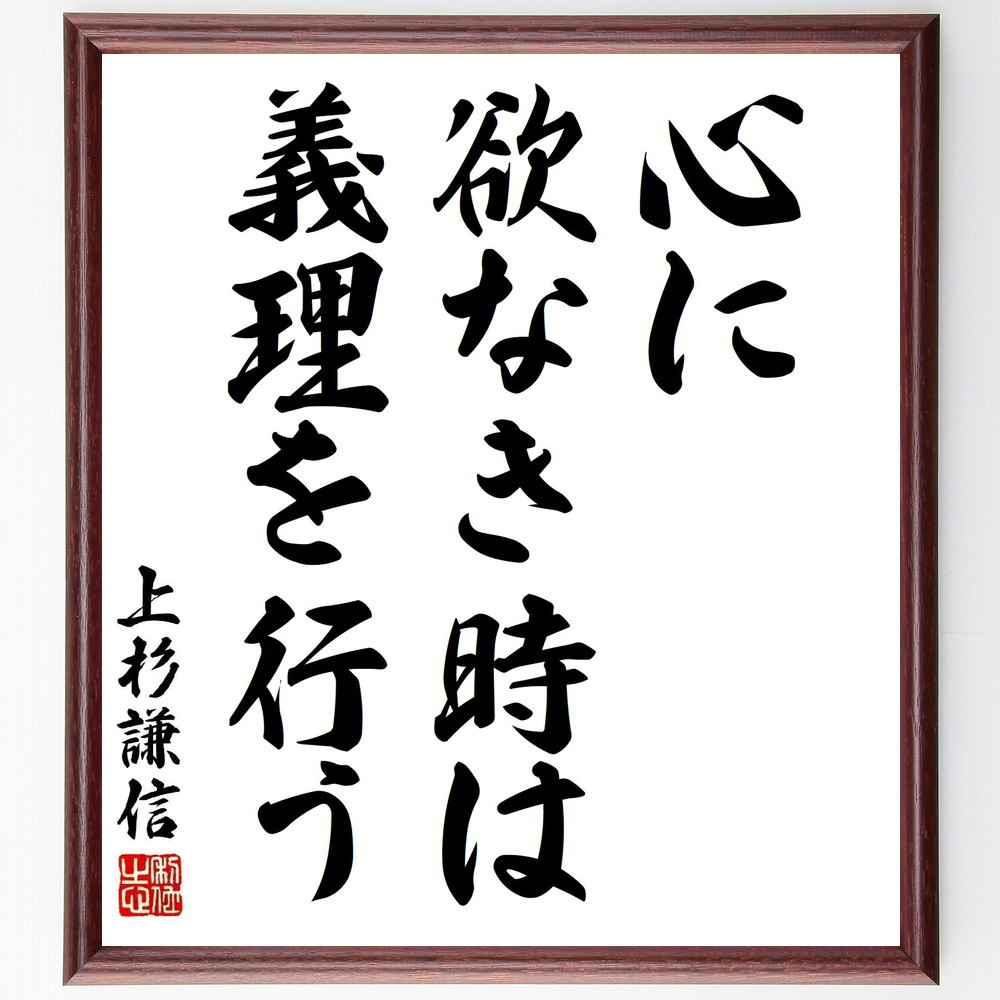 心に
欲なき時は
義理を行う
上杉謙信